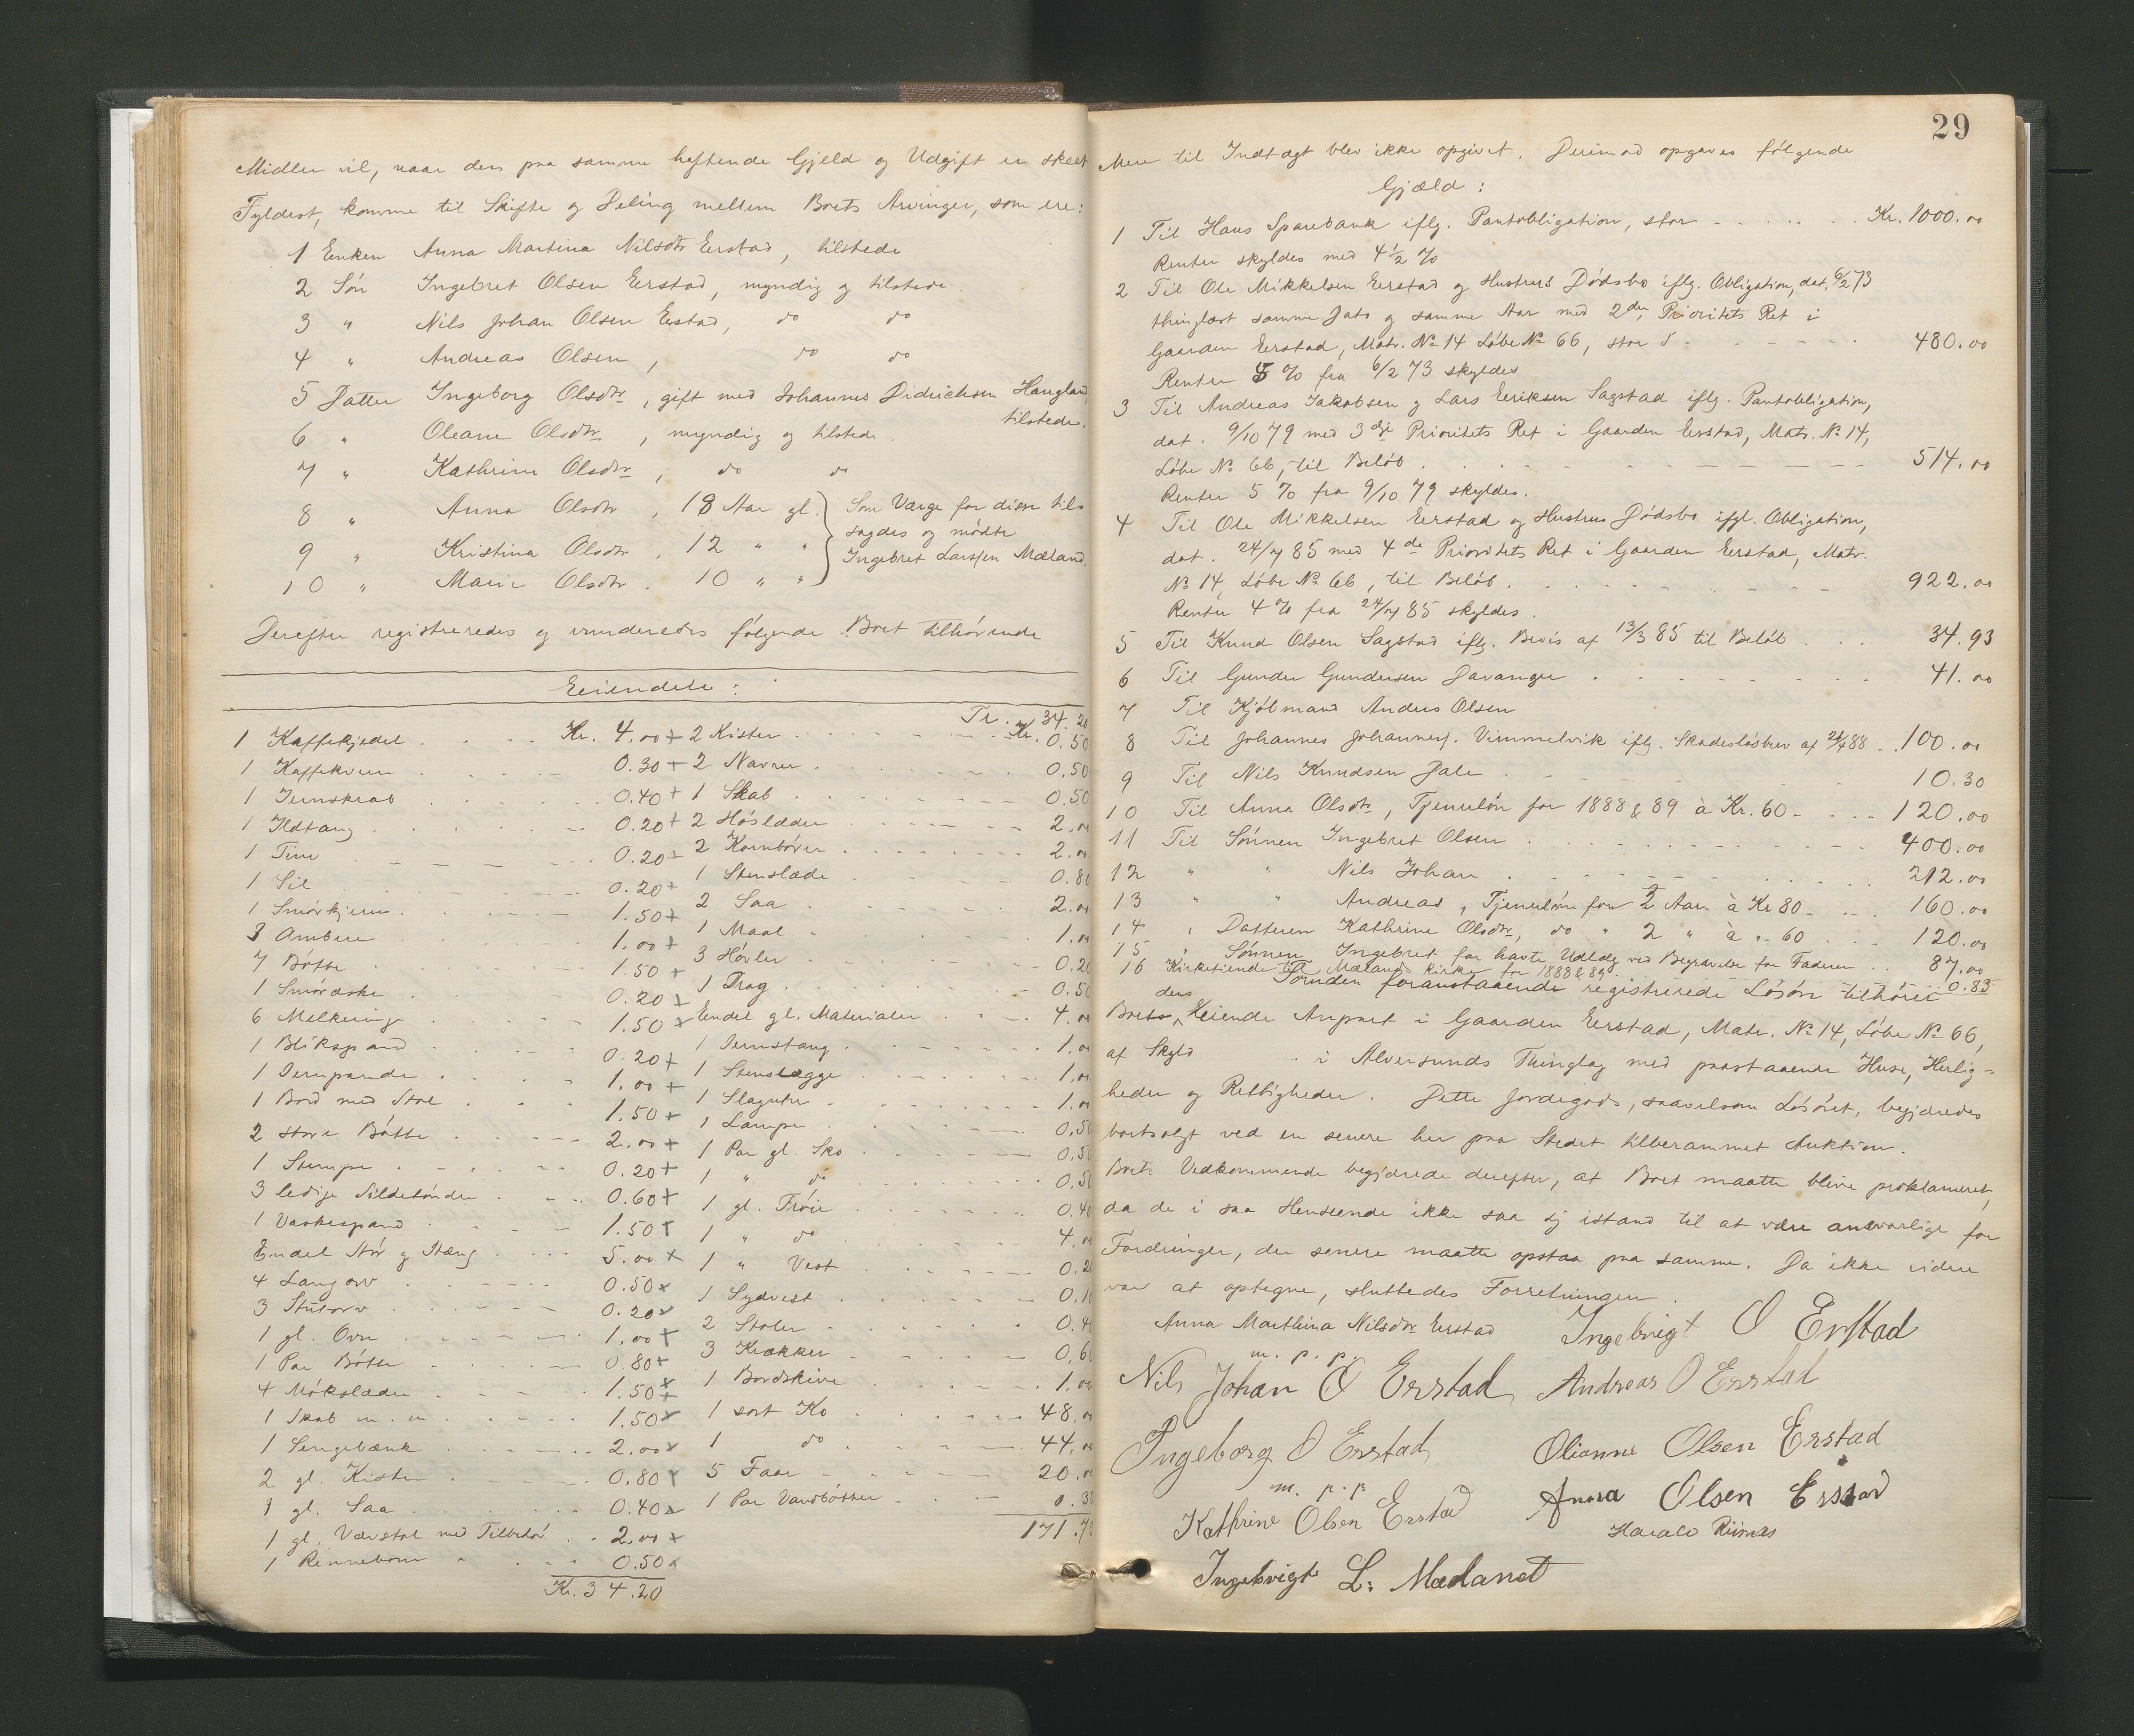 Midler vil, naar den paa samme heftende Gjæld og Udgift er skeet
Fyldest, komme til Skifte og Deling mellem Boets Arvinger, som ere:
1 Enken Anna Martina Nilsdtr Eerstad, tilstede
2 Søn Ingebret Olsen Eerstad, myndig og tilstede.
3 " Nils Johan Olsen Eerstad, do do
4 " Andreas Olsen, do do
5 Datter Ingeborg Olsdtr, gift med Johannes Didrichsen Haugland,
tilstede.
6 " Oleane Olsdtr, myndig og tilstede.
7 " Kathrine Olsdtr, do do
8 " Anna Olsdtr, 18 Aar gl.
9 " Kristina Olsdtr, 12 " "
10 " Marie Olsdtr. 10 " "
Som Værge for disse til-
sagdes og mødte
Ingebret Larssen Mæland.
Derefter registreredes og vurderedes følgende Boet tilhørende
Eiendele:
1 Kaffekjedel . . . . Kr. 4.00 +
1 Kaffekværn 0.30 +
1 Jernskrab . . . . . 0.40 +
1 Ildtang . . . . . 0.20 +
1 Tine 0.20 +
1 Sil 0.20 +
1 Smørkjerne . . . . 1.50 +
3 Ambere . . . . 1.00 +
7 Bøtte . . . . 1.50 +
1 Smørøske . . . . 0.20 +
6 Melkeringe . . . . 1.50 +
1 Blikspand . . . . 0.20 +
1 Jernpande . . . . 1.00 +
1 Bord med Stol . . . 1.50 +
2 store Bøtte . . . . 2.00 +
1 Stempe . . . . 0.20 +
3 ledige Sildetønder . . . 0.60 +
1 Vaskespand . . . . 1.50 +
Endel Stør og Stæng . . . 5.00 +
4 Langorv . . . . 0.50 +
3 Stutorv . . . . 0.20 +
1 gl. Ovn . . . . 1.00 +
1 Par Bøtte . . . . 0.80 +
4 Møkslæder . . . . 1.50 +
1 Skab m. m. . . . . 1.50 +
1 Sengebænk . . . . 2.00 +
2 gl. Kister . . . . 0.80 +
1 gl. Saa . . . . 0.40 +
1 gl. Vævstol med Tilbehør . . 2.00 +
1 Rennebom . . . . 0.50 +
Kr. 34.20
Tr. 34.20
2 Kister . . . . Kr. 0.50
2 Navrer . . . . 0.50
1 Skab . . . . 0.50
2 Høslæder . . . . 2.00
2 Kornbører . . . . 2.00
1 Stenslæde . . . . 0.80
2 Saa . . . . 2.00
1 Maal . . . . 1.00
3 Høvler . . . . 0.20
1 Trog . . . . 0.50
Eendel gl. Materialer . . . 4.00
1 Jernstang . . . . 1.00
1 Stenslægge . . . . 1.00
1 Slaguhr . . . . 1.00
1 Lampe . . . . 0.50
1 Par gl. Sko . . . . 0.50
1 " do . . . . 0.50
1 gl. Trøie . . . . 0.40
1 " do . . . . 4.00
1 " Vest . . . . 0.20
1 Sydvest . . . . 0.10
2 Stoler . . . . 0.40
3 Krakker . . . . 0.60
1 Bordskive . . . . 1.00
1 sort Ko . . . . 48.00
1 do . . . . 44.00
5 Faar . . . . 20.00
1 Par Vandbøtter . . . 0.30
171.70
29
Mere til Indtægt blev ikke opgivet. Derimod opgaves følgende
Gjæld:
1 Til Haus Sparebank iflg. Pantobligation, stor . . . . Kr. 1000.00
Renter skyldes med 4 1/2 %
2 Til Ole Mikkelsen Eerstad og Hustrus Dødsbo iflg. Obligation, dat. 6/2 73
thinglæst samme Dato og samme Aar med 2den Prioritets Ret i
Gaarden Eerstad, Matr. No 14 Løbe No 66, stor . . . . 480.00
Renter 5 % fra 6/2 73 skyldes
3 Til Andreas Jakobsen og Lars Eeriksen Sagstad iflg. Pantobligation,
dat. 9/10 79 med 3die Prioritets Ret i Gaarden Eerstad, Matr. No 14,
Løbe No 66, til Beløb . . . . 514.00
Renter 5 % fra 9/10 79 skyldes.
4 Til Ole Mikkelsen Eerstad og Hustrus Dødsbo ifgl. Obligation,
dat. 24/7 85 med 4de Prioritets Ret i Gaarden Eerstad, Matr.
No 14, Løbe No 66, til Beløb . . . . 922.00
Renter 4 % fra 24/7 85 skyldes.
5 Til Knud Olsen Sagstad iflg. Bevis af 13/3 85 til Beløb . . . 34.93
6 Til Gunder Gundersen Davanger . . . . 41.00
7 Til Kjøbmand Anders Olsen
8 Til Johannes Johanness. Vimmelvik iflg. Skadesløsbrev af 24/4 88 . . 100.00
9 Til Nils Knudsen Dale . . . . 10.30
10 Til Anna Olsdtr, Tjenerløn for 1888 & 89 à Kr. 60 - . . . 120.00
11 Til Sønnen Ingebret Olsen . . . . 400.00
12 " " Nils Johan . . . . 212.00
13 " " Andreas, Tjenerløn for 2 Aar à Kr 80 - . . . 160.00
14 " Datteren Kathrine Olsdtr, do " 2 " à ". 60 . . . 120.00
15 " Sønnen Ingebret for havte Udlæg ved Begravelse for Faderen . . 87.00
16 Kirketiende til Mælands Kirke for 1888 & 89 . 0.83
Foruden foranstaaende registrerede Løsøre tilhører
Boets dens Eeiende Anpart i Gaarden Eerstad, Matr. No 14, Løbe No 66,
af Skyld . . i Alversunds Thinglag med paastaaende Huse, Herlig-
heder og Rettigheder. Dette Jordegods, saavelsom Løsøret, begjæredes
bortsolgt ved en senere her paa Stedet tilberammet Auktion.
Boets Vedkommende begjærede derefter, at Boet maatte blive proklameret,
da de i saa Henseende ikke saa sig istand til at være ansvarlige for
Fordringer, der senere maatte opstaa paa samme. Da ikke videre
var at optegne, sluttedes Forretningen.
Anna Marthina Nilsdtr Eerstad Ingebrigt O Erstad
m. p. p.
Nils Johan O Erstad, Andreas O Erstad
Ingeborg O Erstad, Olianne Olsen Erstad
m. p. p
Kathrine Olsen Erstad Anna Olsen Erstad
Harald Riisnæs
Ingebrigt L: Mæland